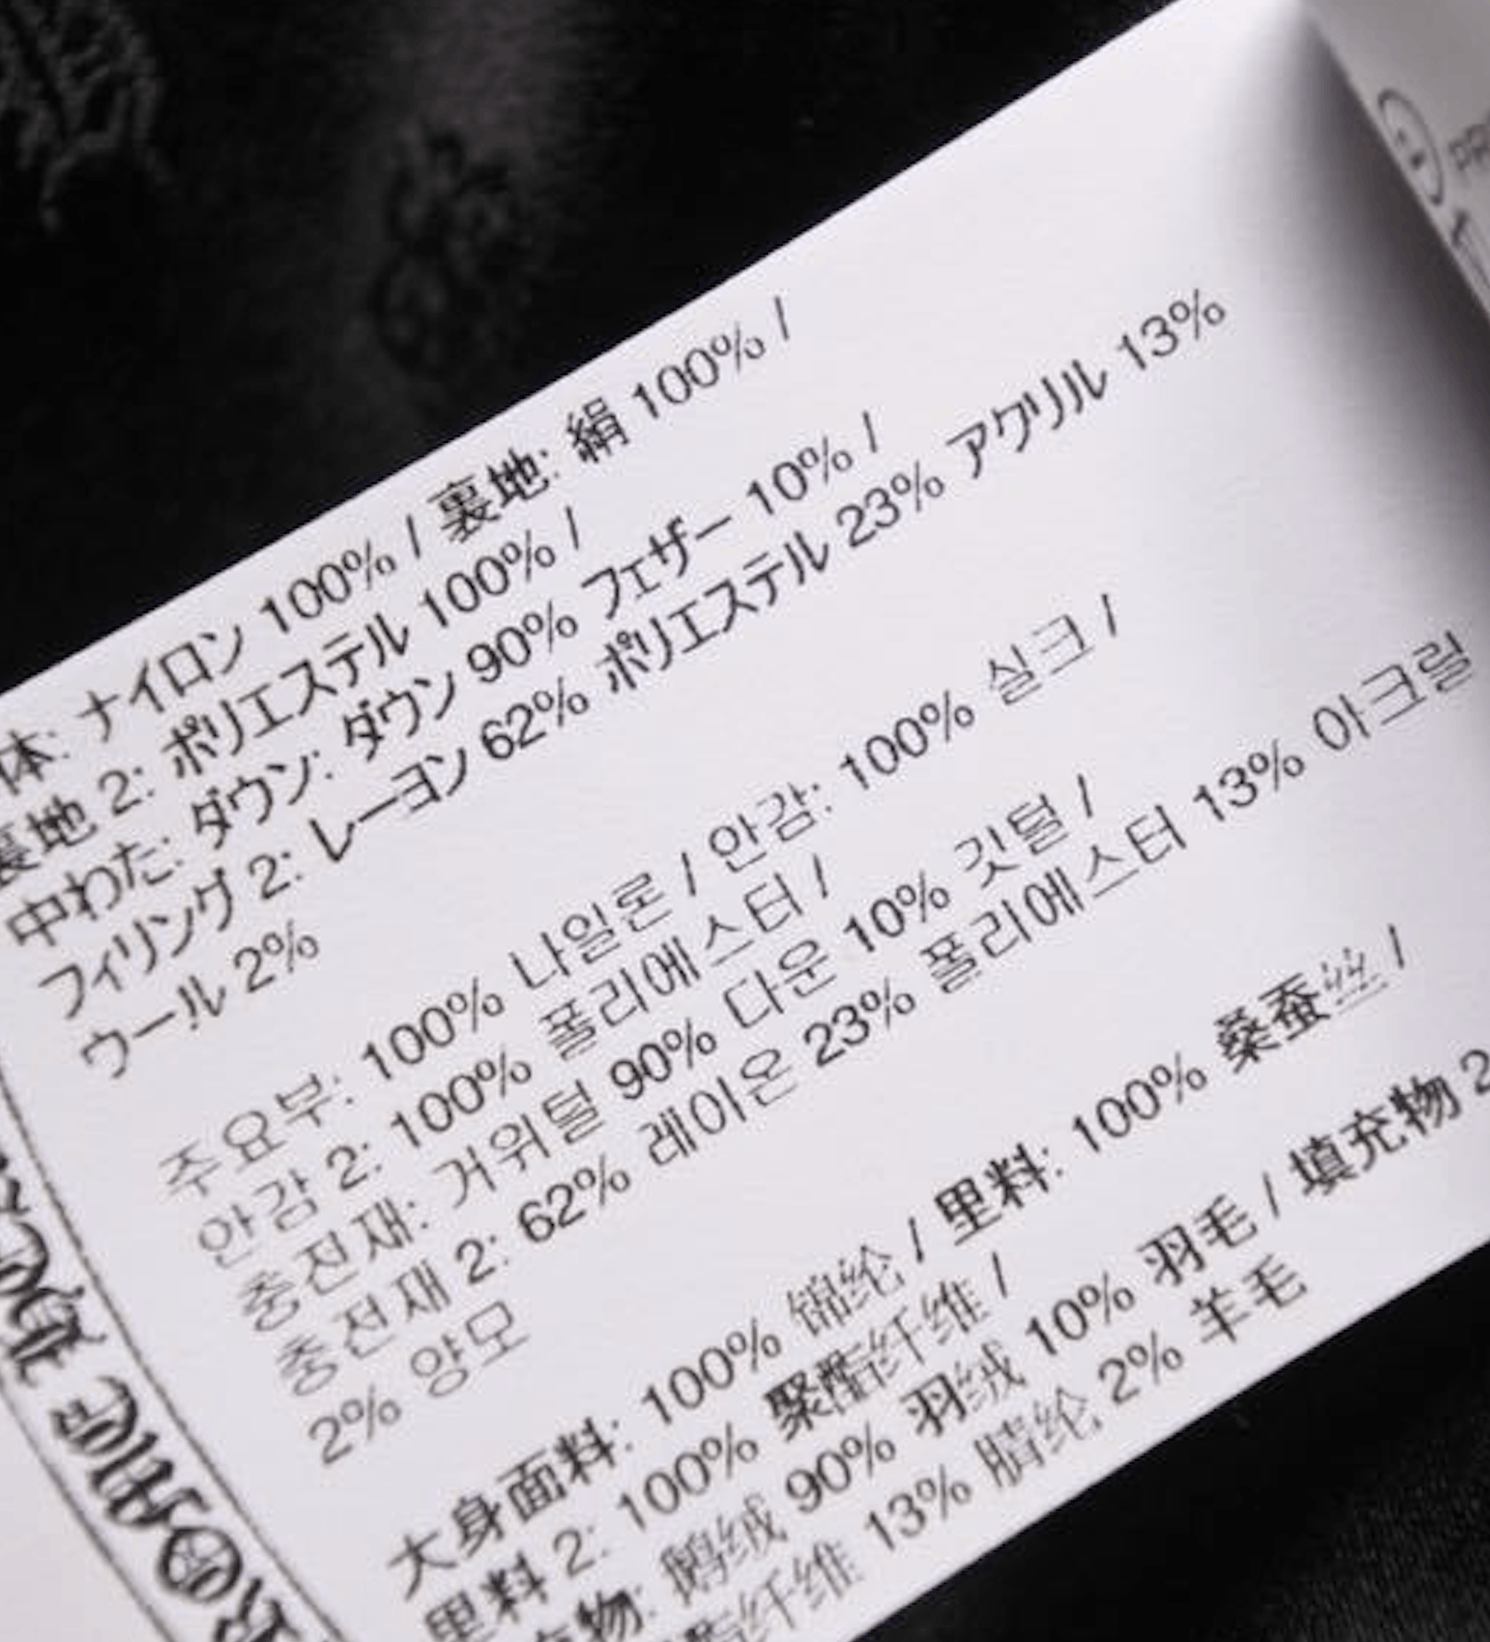 体: ナイロン 100% / 裏地: 絹 100% /
裏地 2: ポリエステル 100% /
中わた: ダウン: ダウン 90% フェザー 10% /
フィリング 2: レーヨン 62% ポリエステル 23% アクリル 13%
ウール 2%
주요부: 100% 나일론 / 안감: 100% 실크 /
안감 2: 100% 폴리에스터 /
충전재: 거위털 90% 다운 10% 깃털 /
충전재 2: 62% 레이온 23% 폴리에스터 13% 아크릴
2% 양모
大身面料: 100% 锦纶 / 里料: 100% 桑蚕丝 /
里料 2: 100% 聚酯纤维 /
充物: 鹅绒 90% 羽绒 10% 羽毛 / 填充物 2
酯纤维 13% 腈纶 2% 羊毛
PR